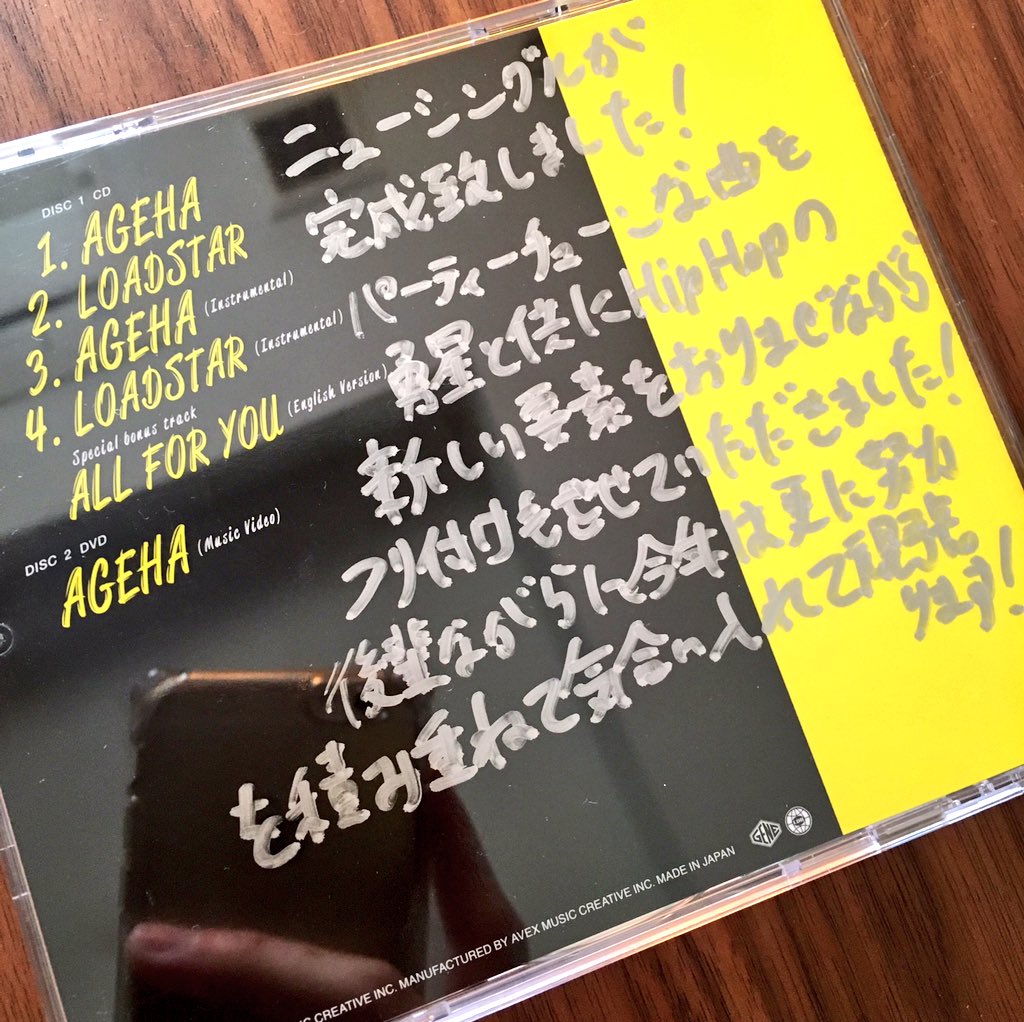 DISC 1 CD
1. AGEHA
2. LOADSTAR
3. AGEHA (Instrumental)
4. LOADSTAR (Instrumental)
Special bonus track
ALL FOR YOU (English Version)
DISC 2 DVD
AGEHA (Music Video)
ニューシングルが
完成致しました!
パーティーチューンな曲を
勇星と供にHipHopの
新しい要素をおりまぜながら
フリ付けもさせていただきました!
後輩ながらに今年は更に努力
を積み重ねて気合い入れて頑張
ります!
CREATIVE INC. MANUFACTURED BY AVEX MUSIC CREATIVE INC. MADE IN JAPAN